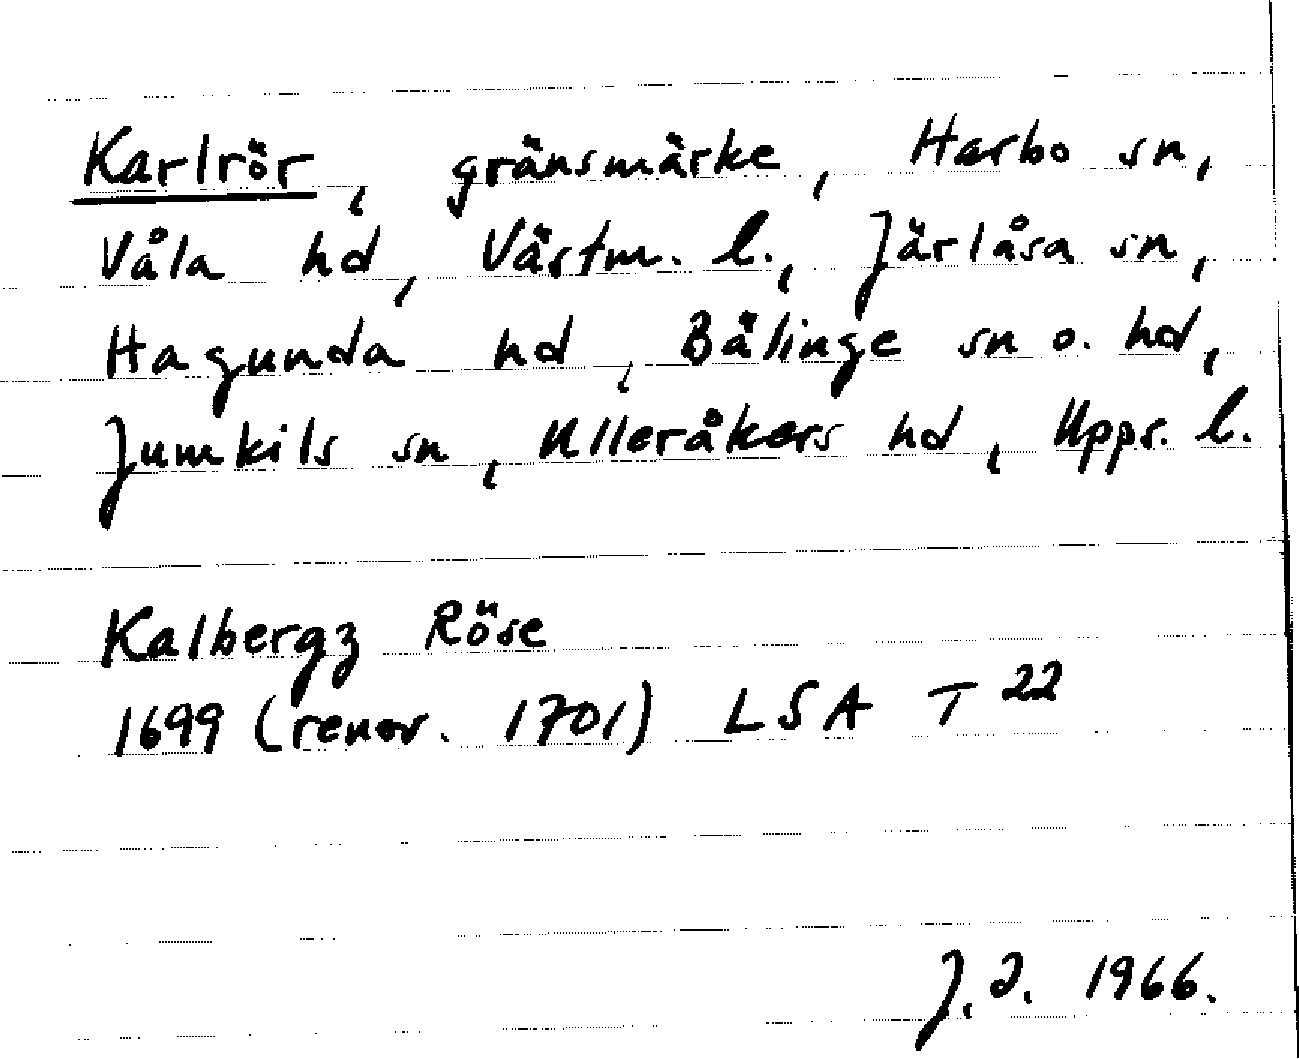 Karlrör, gränsmärke, Harbo sn,
Våla hd, Västm. l., Järlåsa sn,
Hagunda hd, Bälinge sn o. hd,
Jumkils sn, Ulleråkers hd, Upps. l.
Kalbergz Röse
1699 (renov. 1701) LSA T 22
J.J. 1966.